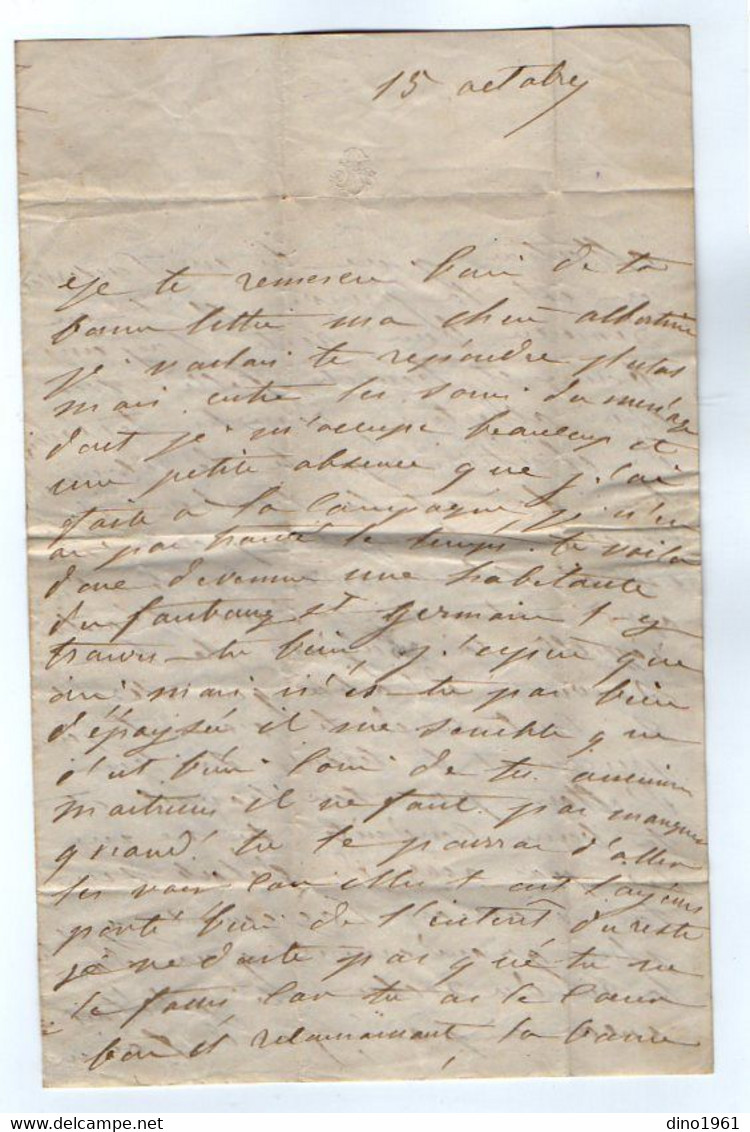 15 octobre
Je te remercie bien de ta
bonne lettre ma chère albertine
je voulais te repondre plutot
mais entre les soins du menage
dont je m'occupe beaucoup et
une petite absence que j'ai
faite à la campagne, je n'en
ai pas trouvé le temps. te voila
donc devenue une habitante
du faubourg st germain t-y
trouves-tu bien, j'espère que
oui mais n'es-tu pas bien
dépaysée il me semble que
c'est bien loin de tes anciennes
maitresses il ne faut pas manquer
quand tu le pourras d'aller
les voir car elles t'ont toujours
porté bien de l'interet du reste
je ne doute pas que tu ne
le fasses car tu as le cœur
bon et reconnaissant la bonne
delcampe.net
dino1961